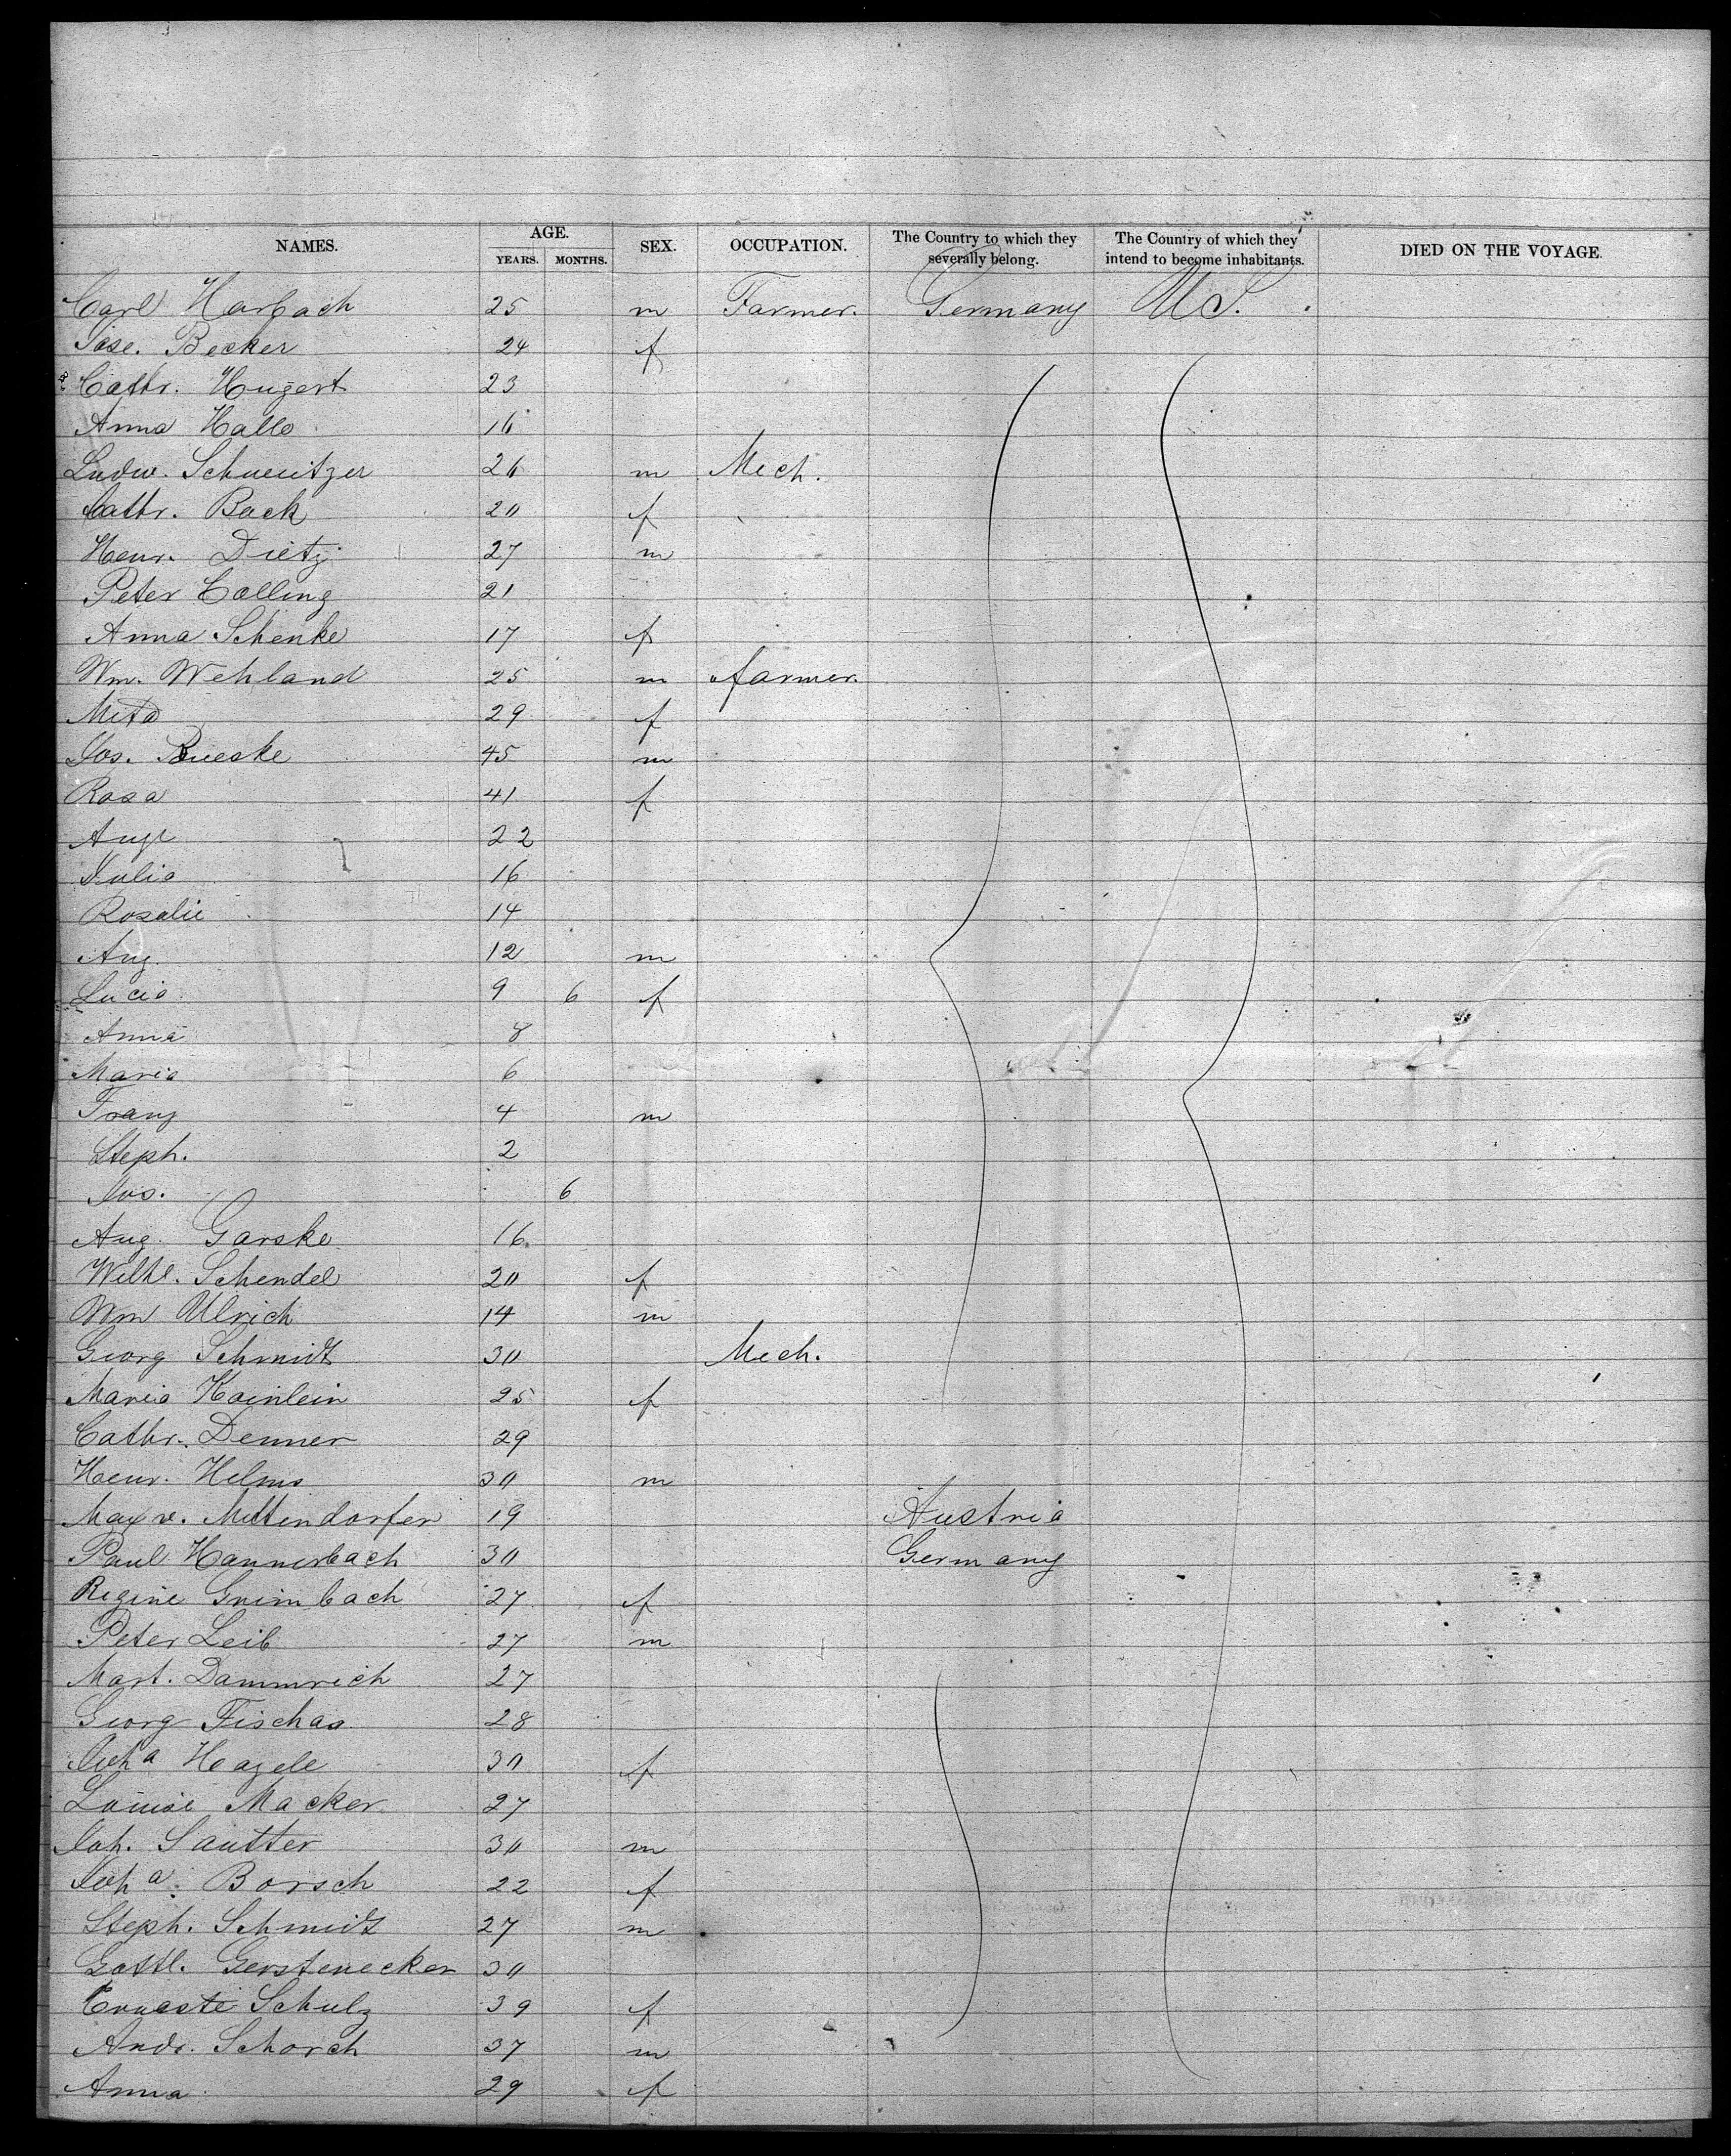 NAMES. AGE. YEARS. MONTHS. SEX. OCCUPATION. The Country to which they severally belong. The Country of which they intend to become inhabitants. DIED ON THE VOYAGE.
Carl Harbach 25 m Farmer. Germany U S.
Jose. Becker 24 f
Cathr. Hugert 23
Anna Hallo 16
Ludw. Schweitzer 26 m Mech.
Cathr. Back 20 f
Henr. Dietz 27 m
Peter Colling 21
Anna Schenke 17 f
Wm. Wehland 25 m farmer.
Meta 29 f
Jos. Rueske 45 m
Rosa 41 f
Auge 22
Julia 16
Rosalie 14
Aug. 12 m
Lucia 9 6 f
Anna 8
Maria 6
Franz 4 m
Steph. 2
Jos. 6
Aug. Garske 16
Wilhl. Schendel 20 f
Wm Ulrich 14 m
Georg Schmidt 30 Mech.
Maria Hainlein 25 f
Cathr. Denner 29
Henr. Helms 30 m
Max v. Mittendorfer 19 Austria
Paul Hannerbach 30 Germany
Regine Grimbach 27 f
Peter Leib 27 m
Mart. Dammrich 27
Georg Fischas 28
Joha Hagele 30 f
Louise Macker 27
Joh. Sautter 30 m
Joha. Borsch 22 f
Steph. Schmidt 27 m
Gottl. Gerstenecker 30
Erneste Schulz 39 f
Andr. Schorch 37 m
Anna 29 f